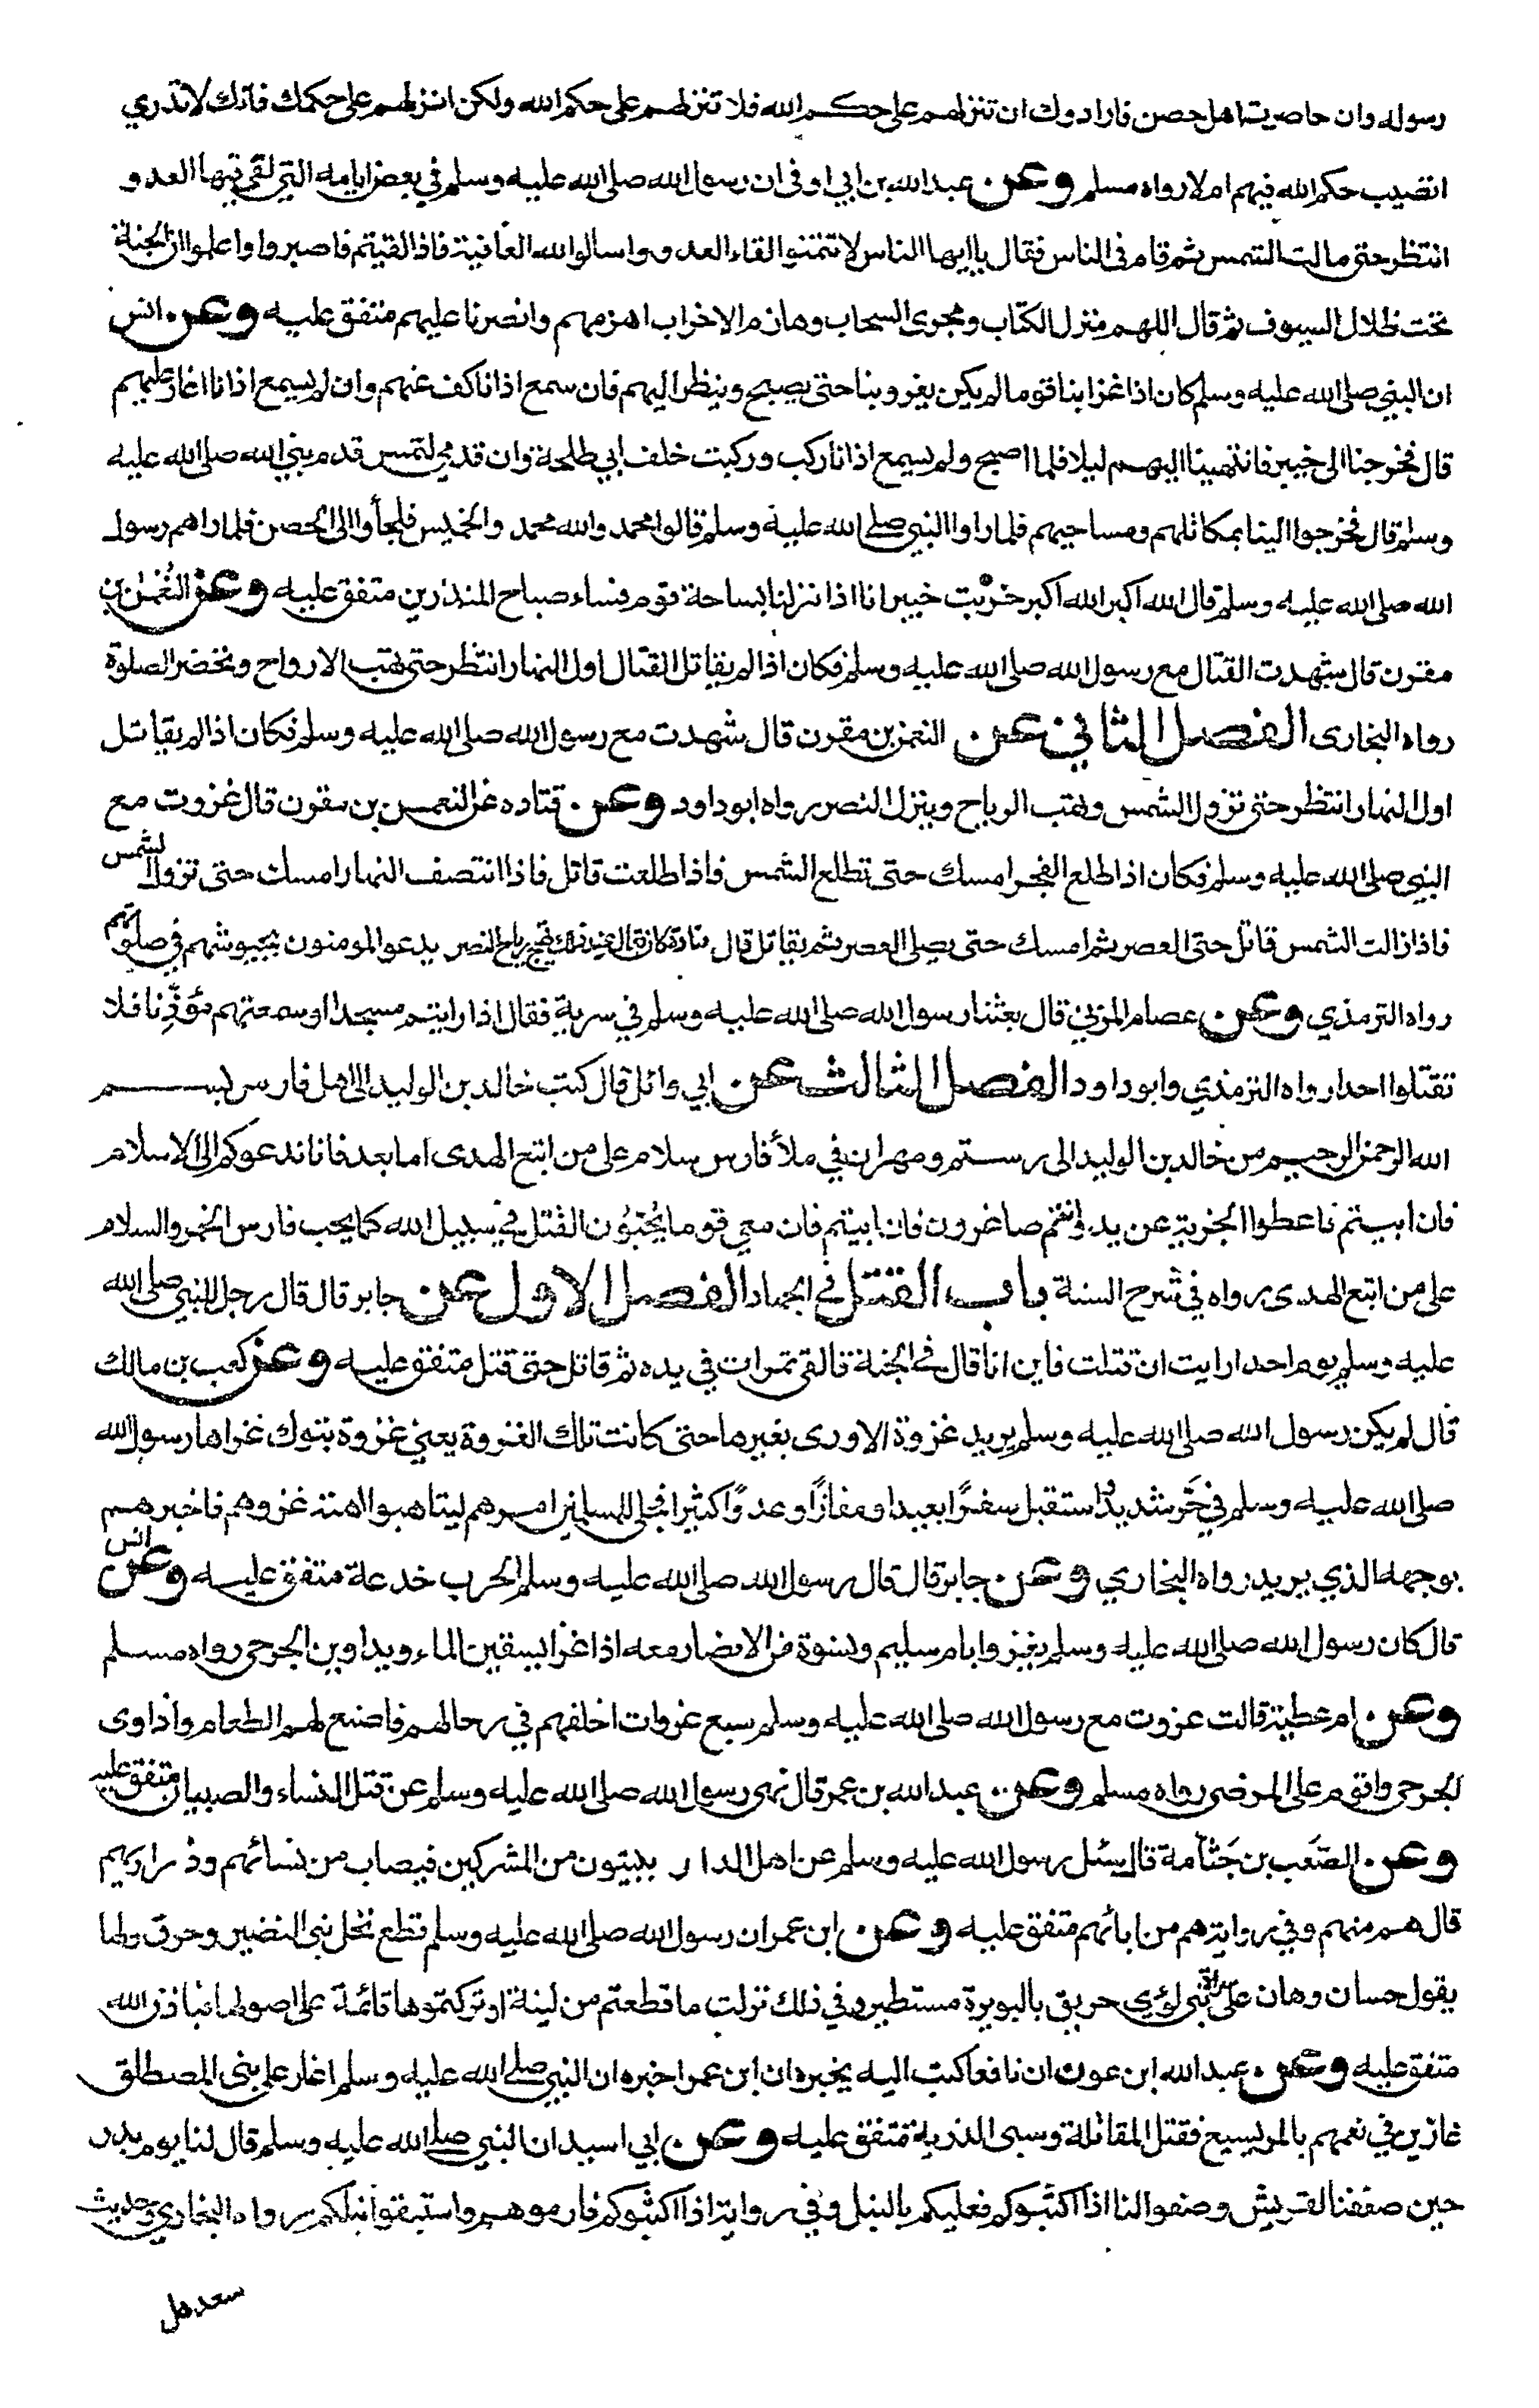 رسوله وان حاصرت اهل حصن فارادوك ان تنزلهم على حكم الله فلا تنزلهم على حكم الله ولكن انزلهم على حكمك فانك لا تدري
اتصيب حكم الله فيهم ام لا رواه مسلم وعن عبد الله بن ابي اوفى ان رسول الله صلى الله عليه وسلم في بعض ايامه التي لقي فيها العدو
انتظر حتى مالت الشمس ثم قام في الناس فقال يا ايها الناس لا تتمنوا لقاء العدو واسالوا الله العافية فاذا لقيتم فاصبروا واعلموا ان الجنة
تحت ظلال السيوف ثم قال اللهم منزل الكتاب ومجرى السحاب وهازم الاحزاب اهزمهم وانصرنا عليهم متفق عليه وعن انس
ان النبي صلى الله عليه وسلم كان اذا غزا بنا قوما لم يكن يغزو بنا حتى يصبح وينظر اليهم فان سمع اذانا كف عنهم وان لم يسمع اذانا اغار عليهم
قال فخرجنا الى خيبر فانتهينا اليهم ليلا فلما اصبح ولم يسمع اذانا ركب وركبت خلف ابي طلحة وان قدمي لتمس قدم نبي الله صلى الله عليه
وسلم قال فخرجوا الينا بمكاتلهم ومساحيهم فلما راوا النبي صلى الله عليه وسلم قالوا محمد والله محمد والخميس فلجأوا الى الحصن فلما راهم رسول
الله صلى الله عليه وسلم قال الله اكبر الله اكبر خربت خيبر انا اذا نزلنا بساحة قوم فساء صباح المنذرين متفق عليه وعن النعمن بن
مقرن قال شهدت القتال مع رسول الله صلى الله عليه وسلم فكان اذا لم يقاتل القتال اول النهار انتظر حتى تهب الارواح وتحضر الصلوة
رواه البخارى الفصل الثاني عن النعمن بن مقرن قال شهدت مع رسول الله صلى الله عليه وسلم فكان اذا لم يقاتل
اول النهار انتظر حتى تزول الشمس وتهب الرياح وينزل النصر رواه ابو داود وعن قتاده عن النعمن بن مقرن قال غزوت مع
النبي صلى الله عليه وسلم فكان اذا طلع الفجر امسك حتى تطلع الشمس فاذا طلعت قاتل فاذا انتصف النهار امسك حتى تزول الشمس
فاذا زالت الشمس قاتل حتى العصر ثم امسك حتى يصلى العصر ثم يقاتل قال قتادة كان يقال عند ذلك تهيج رياح النصر يدعو المومنون لجيوشهم في صلوتهم
رواه الترمذي وعن عصام المزني قال بعثنا رسول الله صلى الله عليه وسلم في سرية فقال اذا رايتم مسجدا او سمعتم مؤذنا فلا
تقتلوا احدا رواه الترمذي وابو داود الفصل الثالث عن ابي وائل قال كتب خالد بن الوليد الى اهل فارس بسم
الله الرحمن الرحيم من خالد بن الوليد الى رستم ومهران في ملأ فارس سلام على من اتبع الهدى اما بعد فانا ندعوكم الى الاسلام
فان ابيتم فاعطوا الجزية عن يد وانتم صاغرون فان ابيتم فان معي قوما يحبون القتل في سبيل الله كما يحب فارس الخمر والسلام
على من اتبع الهدى رواه في شرح السنة باب القتل في الجهاد الفصل الاول عن جابر قال قال رجل للنبي صلى الله
عليه وسلم يوم احد ارايت ان قتلت فاين انا قال في الجنة فالقى تمرات في يده ثم قاتل حتى قتل متفق عليه وعن كعب بن مالك
قال لم يكن رسول الله صلى الله عليه وسلم يريد غزوة الا ورى بغيرها حتى كانت تلك الغزوة يعني غزوة تبوك غزاها رسول الله
صلى الله عليه وسلم في حر شديد واستقبل سفرا بعيدا ومفازا وعدوا كثيرا فجلى للمسلمين امرهم ليتاهبوا اهبة غزوهم فاخبرهم
بوجهه الذي يريد رواه البخاري وعن جابر قال قال رسول الله صلى الله عليه وسلم الحرب خدعة متفق عليه وعن انس
قال كان رسول الله صلى الله عليه وسلم يغزو بام سليم ونسوة من الانصار معه اذا غزا يسقين الماء ويداوين الجرحى رواه مسلم
وعن ام عطية قالت غزوت مع رسول الله صلى الله عليه وسلم سبع غزوات اخلفهم في رحالهم فاصنع لهم الطعام واداوى
الجرحى واقوم على المرضى رواه مسلم وعن عبد الله بن عمر قال نهى رسول الله صلى الله عليه وسلم عن قتل النساء والصبيان متفق عليه
وعن الصعب بن جثامة قال سئل رسول الله عليه وسلم عن اهل الدار يبيتون من المشركين فيصاب من نسائهم وذراريهم
قال هم منهم وفي رواية هم من ابائهم متفق عليه وعن ابن عمر ان رسول الله صلى الله عليه وسلم قطع نخل بني النضير وحرق ولها
يقول حسان وهان على سراة بني لؤي حريق بالبويرة مستطير وفي ذلك نزلت ما قطعتم من لينة او تركتموها قائمة على اصولها فباذن الله
متفق عليه وعن عبد الله ابن عون ان نافعا كتب اليه يخبره ان ابن عمر اخبره ان النبي صلى الله عليه وسلم اغار على بنى المصطلق
غازين في نعمهم بالمريسيع فقتل المقاتلة وسبى الذرية متفق عليه وعن ابي اسيد ان النبي صلى الله عليه وسلم قال لنا يوم بدر
حين صففنا لقريش وصفوا لنا اذا اكثبوكم فعليكم بالنبل وفي رواية اذا اكثبوكم فارموهم واستبقوا نبلكم رواه البخاري وحديث
سعد هل